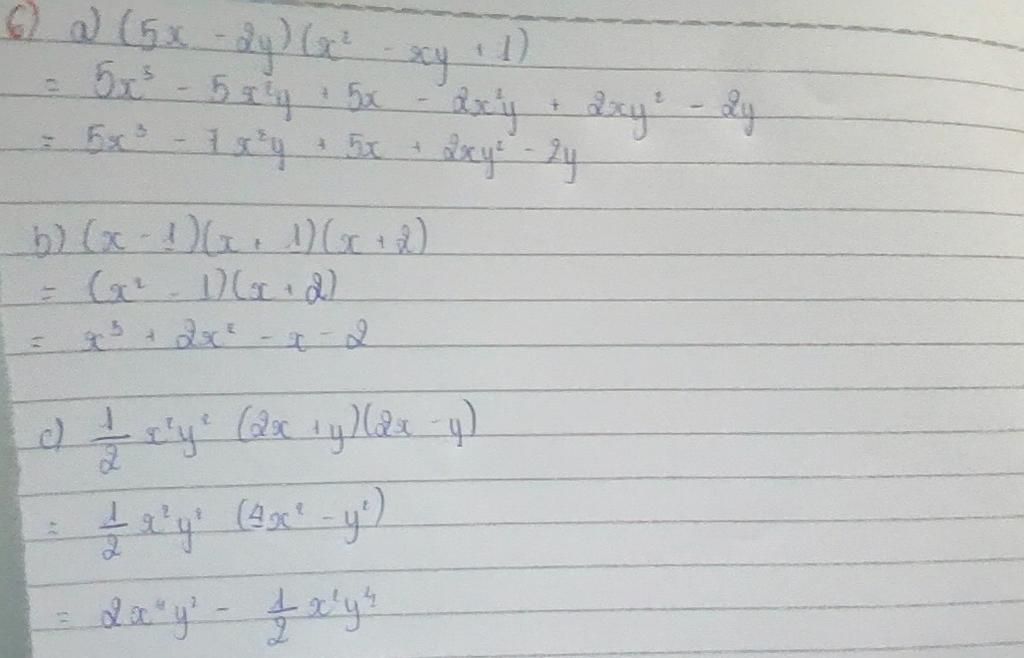 6) a) (5x - 2y)(x² - xy + 1)
= 5x³ - 5x²y + 5x - 2x²y + 2xy² - 2y
= 5x³ - 7x²y + 5x + 2xy² - 2y
b) (x - 1)(x + 1)(x + 2)
= (x² - 1)(x + 2)
= x³ + 2x² - x - 2
c) 1/2 x²y² (2x + y)(2x - y)
= 1/2 x²y² (4x² - y²)
= 2x⁴y² - 1/2 x²y⁴